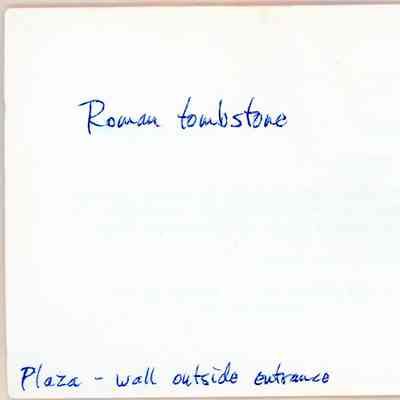 Roman tombstone
Plaza - wall outside entrance